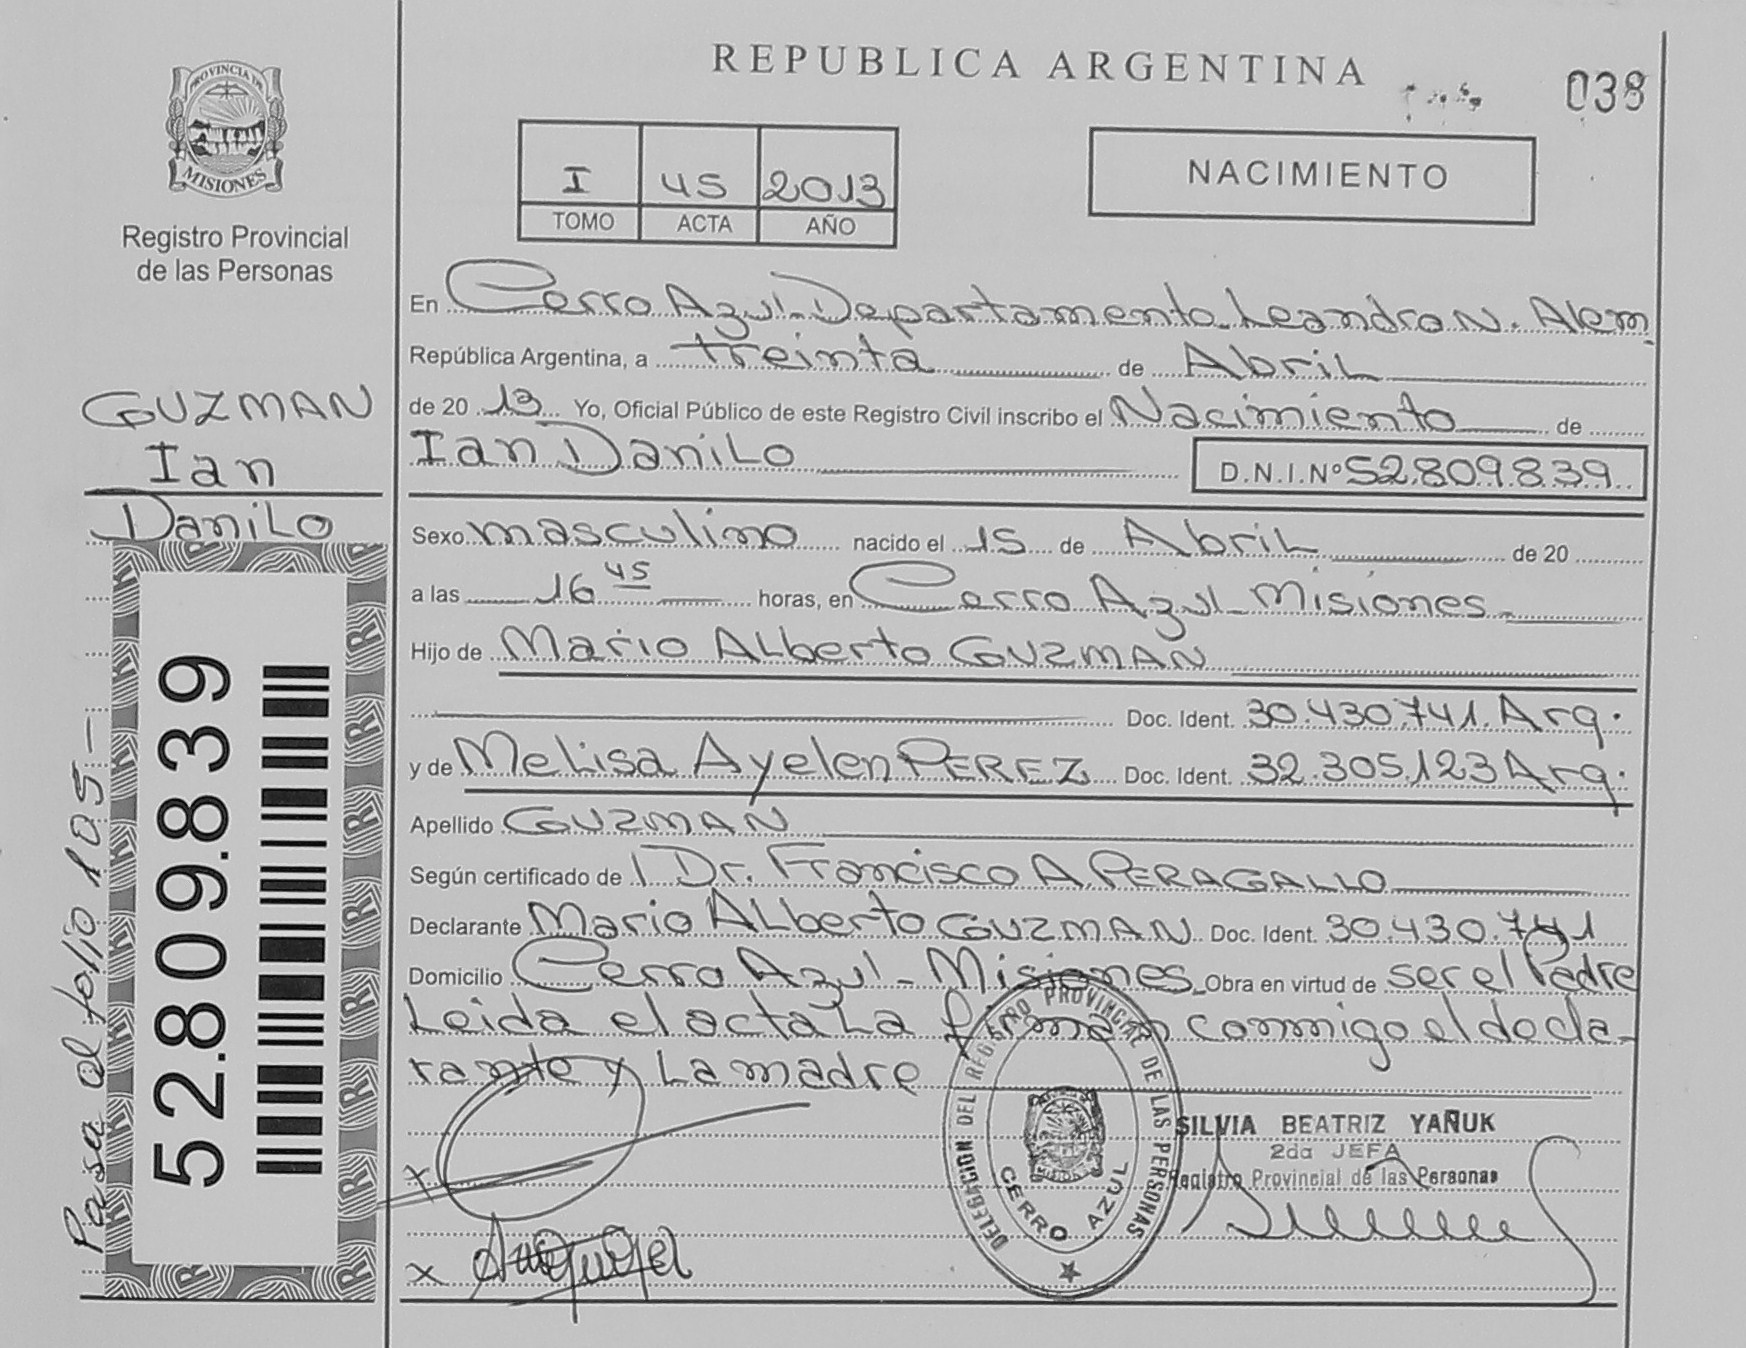 REPUBLICA ARGENTINA
038
PROVINCIA DE
MISIONES
Registro Provincial
de las Personas
I 45 2013
TOMO ACTA AÑO
NACIMIENTO
En Cerro Azul - Departamento Leandro N. Alem
República Argentina, a treinta de Abril
de 20 13 Yo, Oficial Público de este Registro Civil inscribo el Nacimiento de
Ian Danilo D.N.I.Nº 52.809.839
GUZMAN
Ian
Danilo
Sexo masculino nacido el 15 de Abril de 20
a las 16 45 horas, en Cerro Azul - Misiones
Hijo de Mario Alberto GUZMAN
Doc. Ident. 30.430.741. Arg.
y de Melisa Ayelen PEREZ Doc. Ident. 32.305.123 Arg.
Apellido GUZMAN
Según certificado de Dr. Francisco A. PERAGALLO
Declarante Mario Alberto GUZMAN Doc. Ident. 30.430.741
Domicilio Cerro Azul - Misiones Obra en virtud de ser el Padre
Leida el acta La firman conmigo el decla-
rante y La madre
52.809.839
Pasa al folio 105-
DELEGACION DEL REGISTRO PROVINCIAL DE LAS PERSONAS
CERRO AZUL
SILVIA BEATRIZ YAÑUK
2da JEFA
Registro Provincial de las Personas
x
x